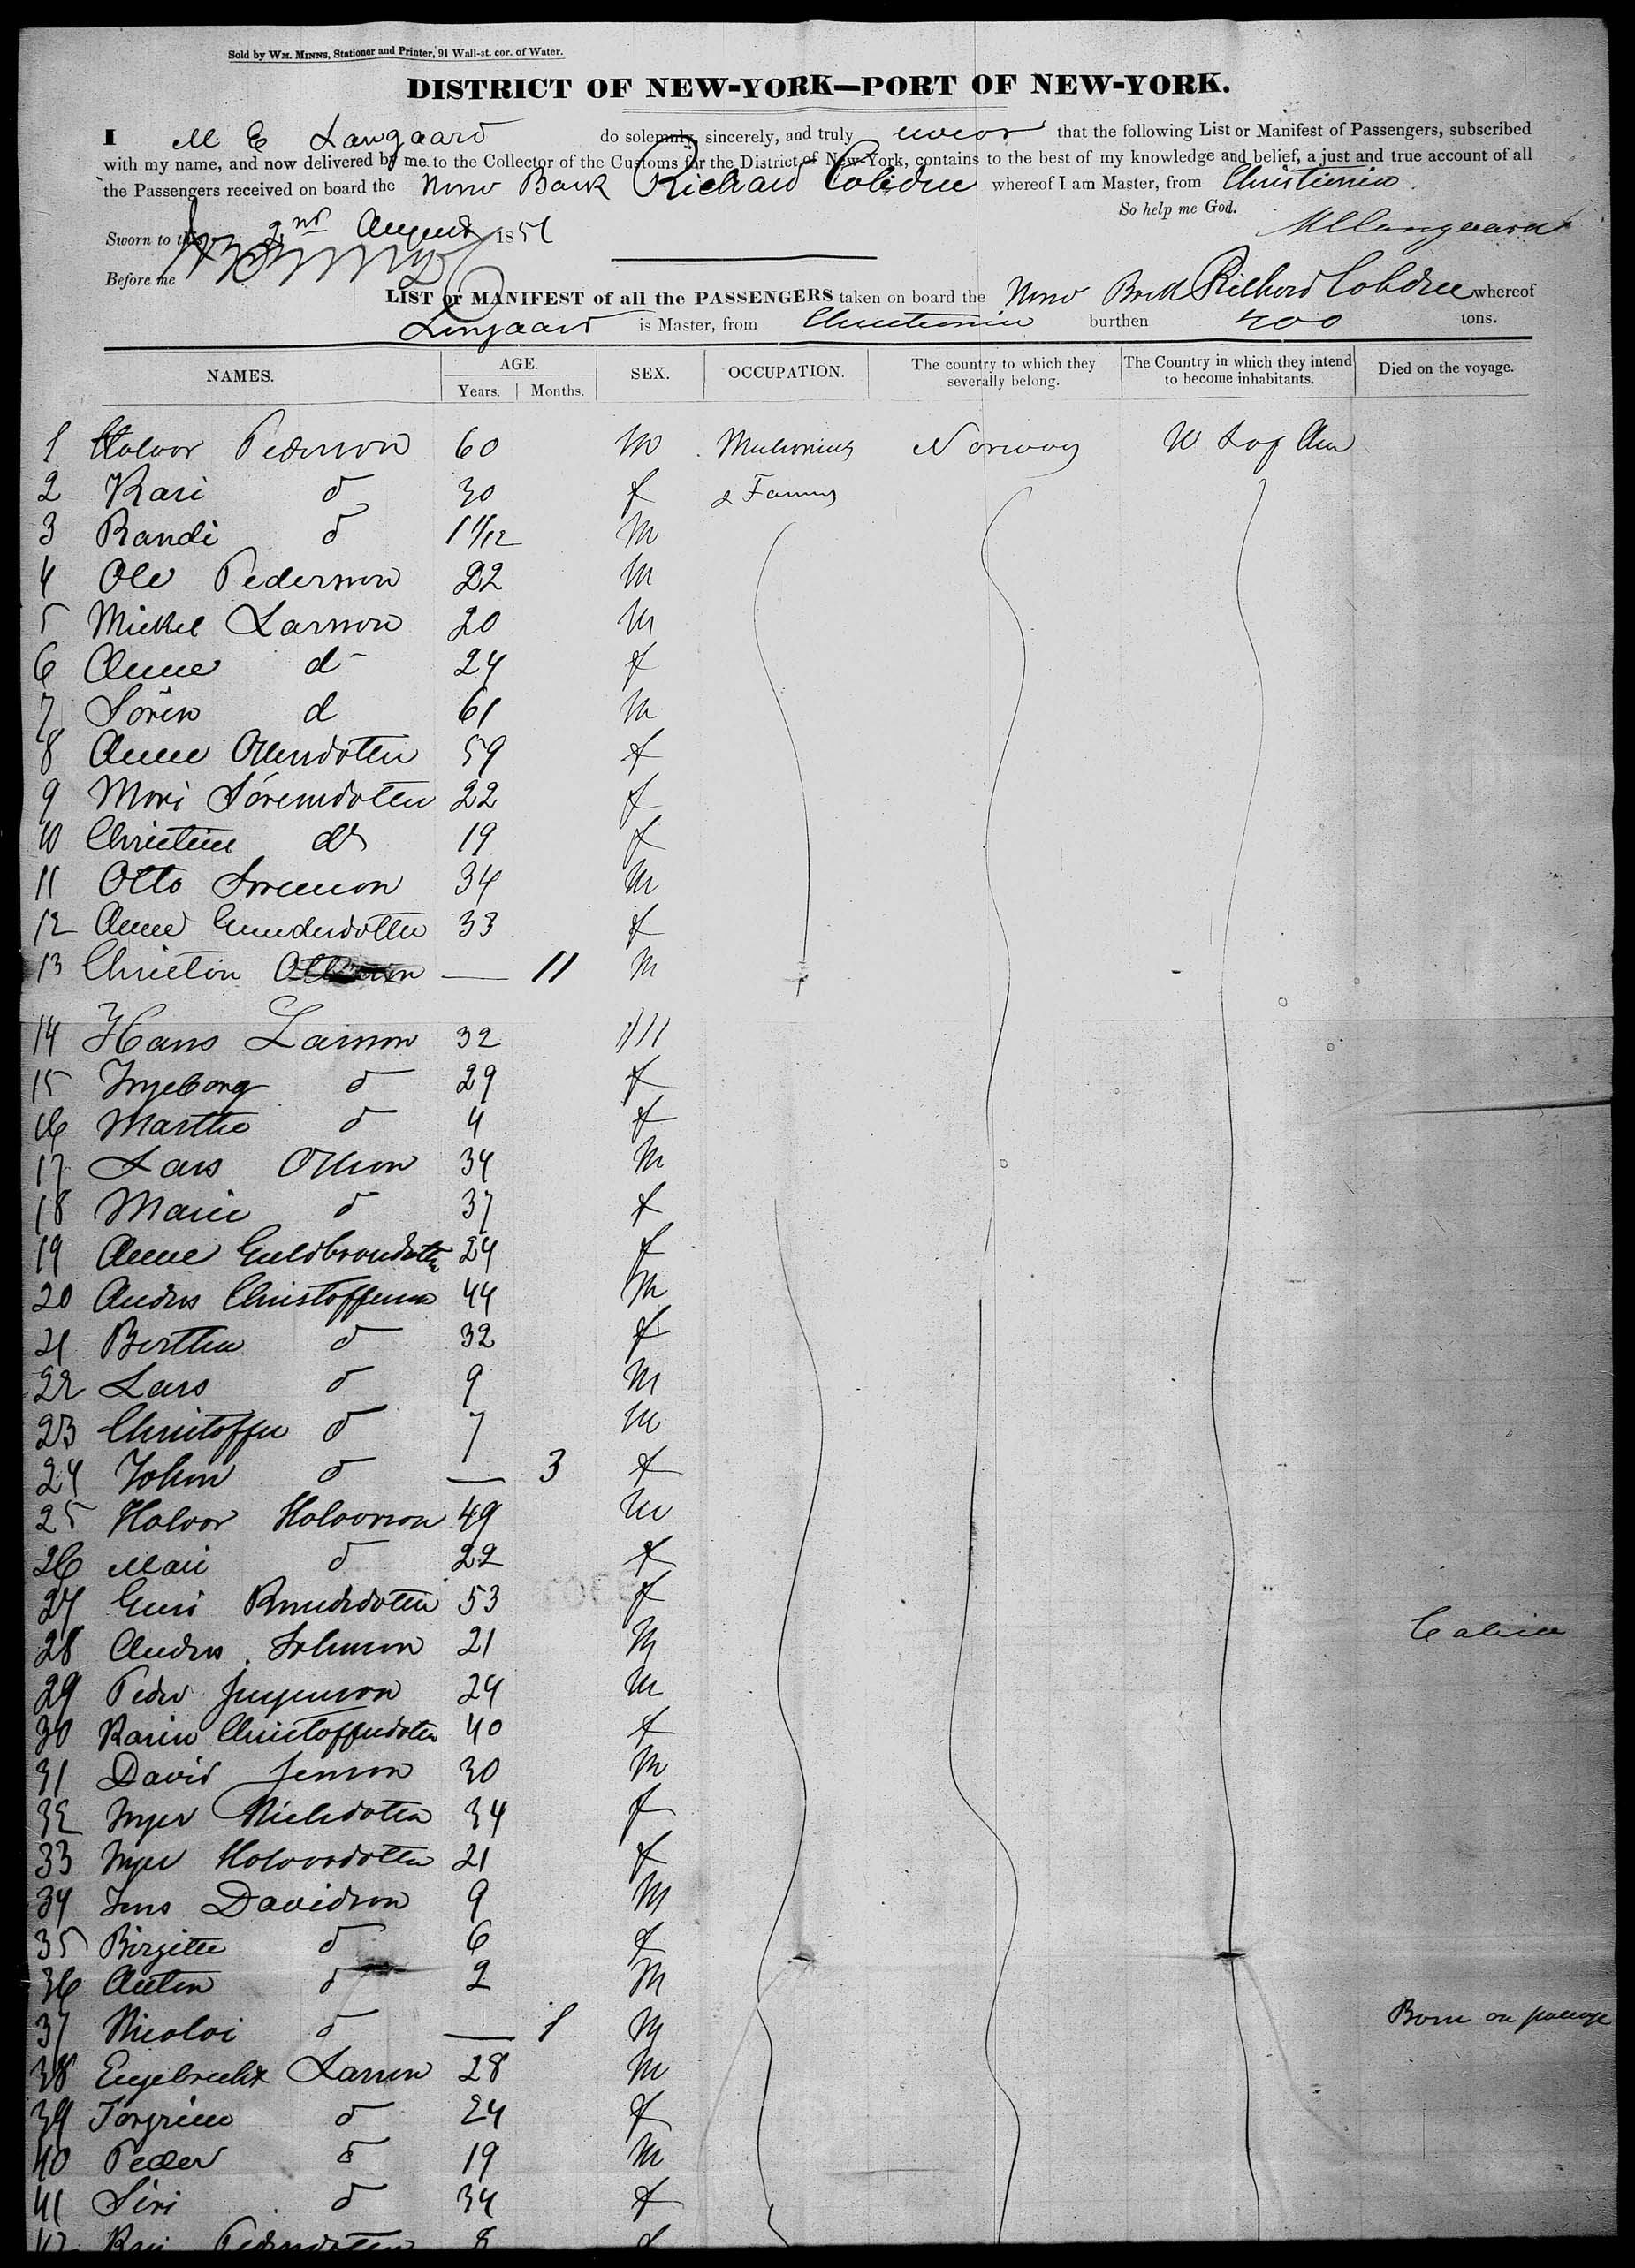 Sold by WM. MINNS, Stationer and Printer, 91 Wall-st. cor. of Water.
DISTRICT OF NEW-YORK—PORT OF NEW-YORK.
I M E Langaard do solemnly, sincerely, and truly swear that the following List or Manifest of Passengers, subscribed
with my name, and now delivered by me to the Collector of the Customs for the District of New-York, contains to the best of my knowledge and belief, a just and true account of all
the Passengers received on board the Norw Bark Richard Cobden whereof I am Master, from Christiania.
So help me God.
Sworn to this 2nd August 1851 MELangaard
Before me
LIST or MANIFEST of all the PASSENGERS taken on board the Norw Bark Richard Cobden whereof
Langaard is Master, from Christiania burthen 400 tons.
NAMES. AGE. SEX. OCCUPATION. The country to which they severally belong. The Country in which they intend to become inhabitants. Died on the voyage.
Years. Months.
1 Halvor Pederson 60 m Mechanics Norway U S of Am
2 Kari d 30 f & Farmers
3 Randi d 1 11/12 m
4 Ole Pederson 22 m
5 Mickel Larson 20 m
6 Anne d 24 f
7 Sören d 61 m
8 Anne Olensdotter 59 f
9 Mari Sörensdotter 22 f
10 Christine do 19 f
11 Otto Sorenson 34 m
12 Anne Gundersdotter 33 f
13 Christian — 11 m
14 Hans Larson 32 m
15 Ingeborg d 29 f
16 Marthe d 4 f
17 Lars Olson 34 m
18 Marie d 37 f
19 Anne Guldbrandsdotter 24 f
20 Andres Christofferson 44 m
21 Berthe d 32 f
22 Lars d 9 m
23 Christoffer d 7 m
24 Johan d — 3 f
25 Halvor Halvorson 49 m
26 Mari d 22 f
27 Guri Knudsdotter 53 f
28 Andres 21 m Cabin
29 Peder Jurgenson 24 m
30 Karin Christoffersdotter 40 f
31 David Jenson 30 m
32 Inger Nielsdotter 34 f
33 Inger Halvorsdotter 21 f
34 Jens Davidson 9 m
35 Birgitte d 6 f
36 Anton d 2 m
37 Nicolai d — 1 m Born on passage
38 Engebrecht Larson 28 m
39 Jorgine d 24 f
40 Peder d 19 m
41 Siri d 34 f
42 Pedersdotter 8 f